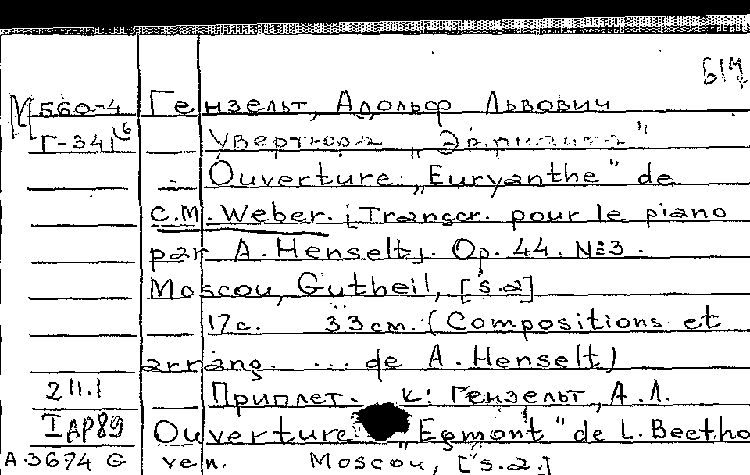 617
М 560-4 Гензельт, Адольф Львович
Г-341б Увертюра „Эврианта"
Ouverture „Euryanthe" de
C.M. Weber. [Transcr. pour le piano
par A. Henselt]. Op. 44. №3.
Moscou, Gutheil, [s.a]
17с. 33см. (Compositions et
arrang. ... de A. Henselt)
2 11.1 Приплет. к: Гензельт, А.Л.
I др89 Ouverture „Egmont" de L. Beetho
A-3674 G ven. Moscou, [s.a.]